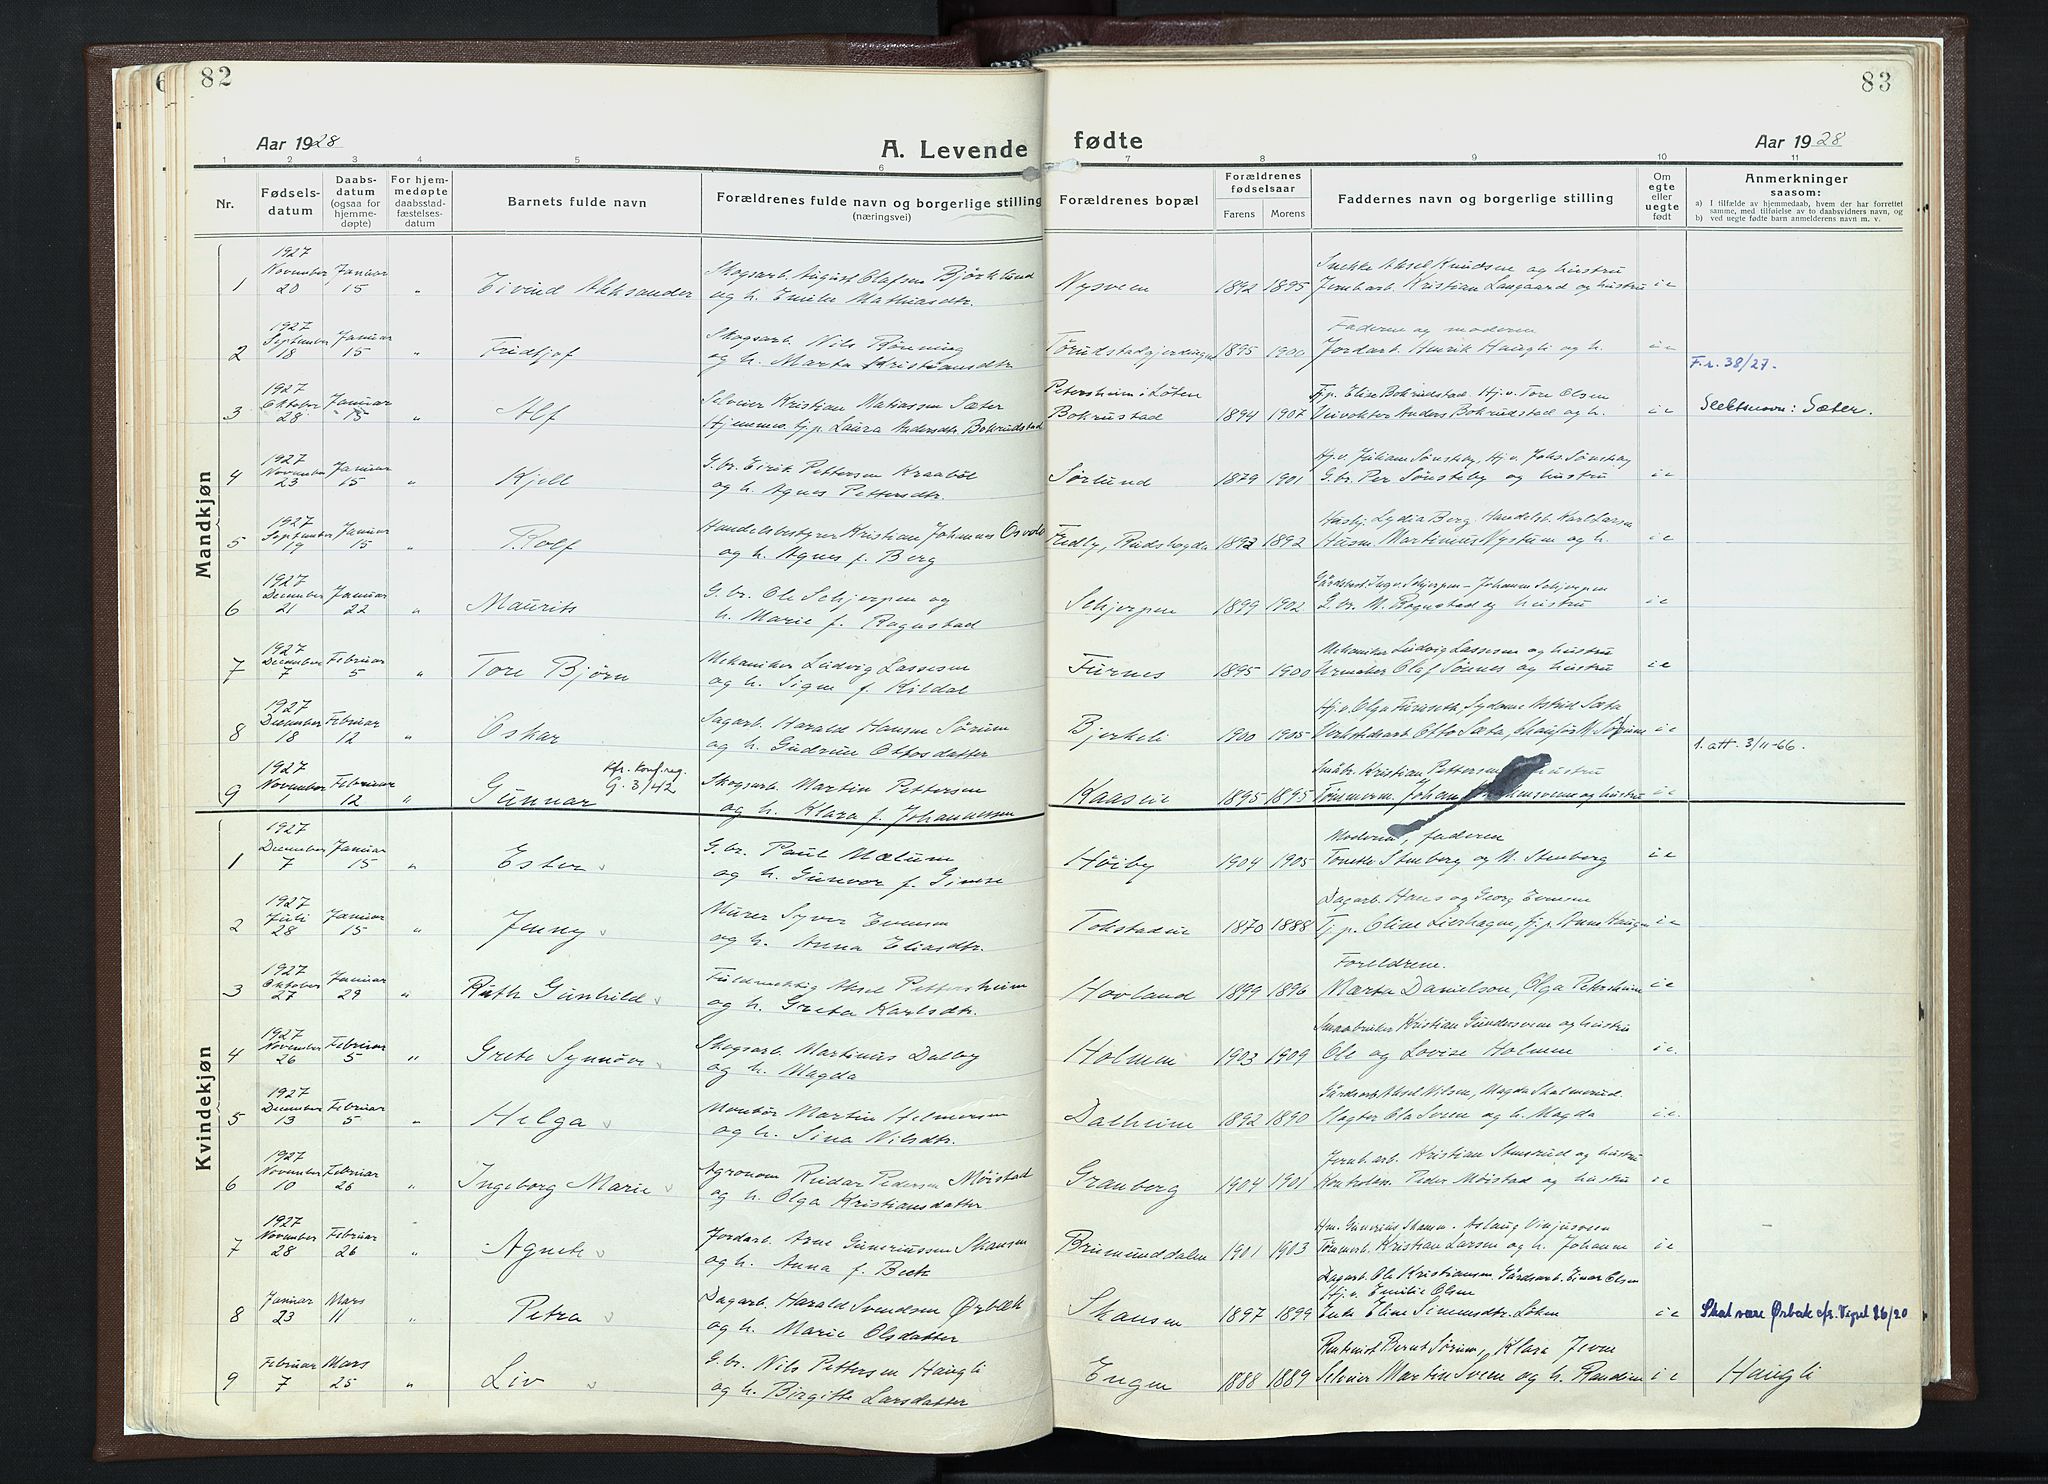 82
Aar 1928
A. Levende
1 2 3 4 5 6
Nr.
Fødsels-
datum
Daabs-
datum
(ogsaa for
hjemme-
døpte)
For hjem-
medøpte
daabsstad-
fæstelses-
datum
Barnets fulde navn
Forældrenes fulde navn og borgerlige stilling
(næringsvei)
Mandkjøn
1927
November Januar Skogsarb. August Olafsen Bjørklund
1 20 15 " Eivind Aleksander og h. Emilie Mathiasdtr.
1927
September Januar Skogsarb. Nils Rønning
2 18 15 " Fridtjof og h. Marta Kristiansdtr.
1927
Oktober Januar Selveier Kristian Matiassen Sæter
3 28 15 " Alf Hjemmev. tj.p. Laura Andersdtr. Bokrudstad
1927
November Januar G.br. Eirik Pettersen Kraabøl
4 23 15 " Kjell og h. Agnes Pettersdtr.
1927
September Januar Handelsbestyrer Kristian Johannes Osvold
5 19 15 " Rolf og h. Agnes f. Berg
1927
December Januar G.br. Ole Schjerpen og
6 21 22 " Maurits h. Marie f. Rognstad
1927
December Februar Mekaniker Ludvig Lassesen
7 7 5 " Tore Bjørn og h. Signe f. Kildal
1927
December Februar Sagarb. Harald Hansen Sørum
8 18 12 " Oskar og h. Gudrun Ottosdatter
1927 Kfr. Konf.reg.
G. 3/42
November Februar Skogsarb. Martin Pettersen
9 1 12 " Gunnar og h. Klara f. Johannessen
Kvindekjøn
1927
December Januar G.br. Paul Mælum
1 7 15 " Ester og h. Gunvor f. Gimse
1927
Juli Januar Murer Syver Evensen
2 28 15 " Jenny og h. Anna Eliasdtr.
1927
Oktober Januar Fuldmektig Aksel Pettersheim
3 27 29 " Ruth Gunhild og h. Greta Karlsdtr.
1927
November Februar Skogsarb. Martinus Dalby
4 26 5 " Grete Synnøve og h. Magda
1927
December Februar Montør Martin Helmersen
5 13 5 " Helga og h. Sina Nilsdtr.
1927
November Februar Agronom Reidar Pedersen Møistad
6 10 26 " Ingeborg Marie og h. Olga Kristiansdatter
1927
November Februar Jordarb. Arne Guneriussen Skansen
7 28 26 " Agnete og h. Anna f. Beck
Januar Mars Dagarb. Harald Svendsen Ørbæk
8 23 11 " Petra og h. Marie Olsdatter
Februar Mars G.br. Nils Pettersen Haugli
9 7 25 " Liv og h. Birgitte Larsdatter
83
fødte
Aar 1928
7 8 9 10 11
Forældrenes bopæl
Forældrenes
fødselsaar
Farens Morens
Faddernes navn og borgerlige stilling
Om
egte
eller
uegte
født
Anmerkninger
saasom:
a) I tilfælde av hjemmedaab, hvem der har forrettet
samme, med tilføielse av to daabsvidners navn, og
b) ved uegte fødte barn anmelderens navn m. v.
Snekker Aksel Knudsen og hustru
Nysveen 1892 1895 Jernbarb. Kristian Langaard og hustru i e
Faderen og moderen
Tørudstadgjerdingen 1895 1900 Jordarb. Henrik Haugli og h. i e
F.r. 38/27.
Petersheim i Løten Tj.p. Elise Bokrudstad. Hj.v. Tore Olsen
Bokrustad 1894 1907 Veivokter Anders Bokrudstad og h. i e Slektsnavn: Sæter.
Hj.v. Juliane Sønsteby, Hj.v. Johs. Sønsteby
Sørlund 1879 1901 G.br. Per Sønsteby og hustru i e
Husbj. Lydia Berg. Handelsb. Karl Larsen
Fredby, Rudshøgda 1892 1892 Husm. Martinus Nystuen og h. i e
Gårdbest. Ingv. Schjerpen – Johanne Schjerpen
Schjerpen 1899 1902 G.br. M. Rognstad og hustru i e
Mekaniker Ludvig Lassesen og hustru
Furnes 1895 1900 Urmaker Olaf Sønnes og hustru i e
Hj.v. Olga Furuseth, Sydame Astrid Sæta
Bjerkeli 1900 1905 Verkstedsarb. Otto Sæta, Chauffør M. Sørum i e
1. att. 3/11-66.
Småbr. Kristian Pettersen hustru
Kaasveie 1895 1895 Tømmerm. Johan og hustru i e
Moderen, faderen
Høiby 1904 1905 Tomelv Stenberg og M. Stenberg i e
Dagarb. Hans og Georg Evensen
Tokstadeie 1870 1888 Tj.p. Oline Lierhagen, tj.p. Anna Haugen i e
Foreldrene.
Hovland 1899 1896 Marta Danielson, Olga Petersheim i e
Smaabruker Kristian Gundersveen og hustru
Holmen 1903 1909 Ole og Lovise Holmen i e.
Gårdsarb. Aksel Nilsen, Magda Skolmerud.
Dalheim 1892 1890 Slagter Ola Sveen og h. Magda i e.
Jernb.arb. Kristian Stensrud og hustru
Granberg 1904 1901 Kontrolass. Peder Møistad og hustru i e
Hm. Gunerius Skansen. Aslaug Vinjusveen
Brumunddalen 1901 1903 Tømmerb. Kristian Larsen og h. Johanne i e
Dagarb. Ole Kristiansen. Gårdsarb. Einar Olsen
Hj.v. Emilie Olsen
Skansen 1897 1899 Enke Eline Simensdtr. Løken i e Skal være Ørbæk cfr. Vigsel 26/20
Rentenist Bernt Sørum, Klara Jevne
Engen 1888 1889 Selveier Martin Sveen og h. Randine i e Haugli